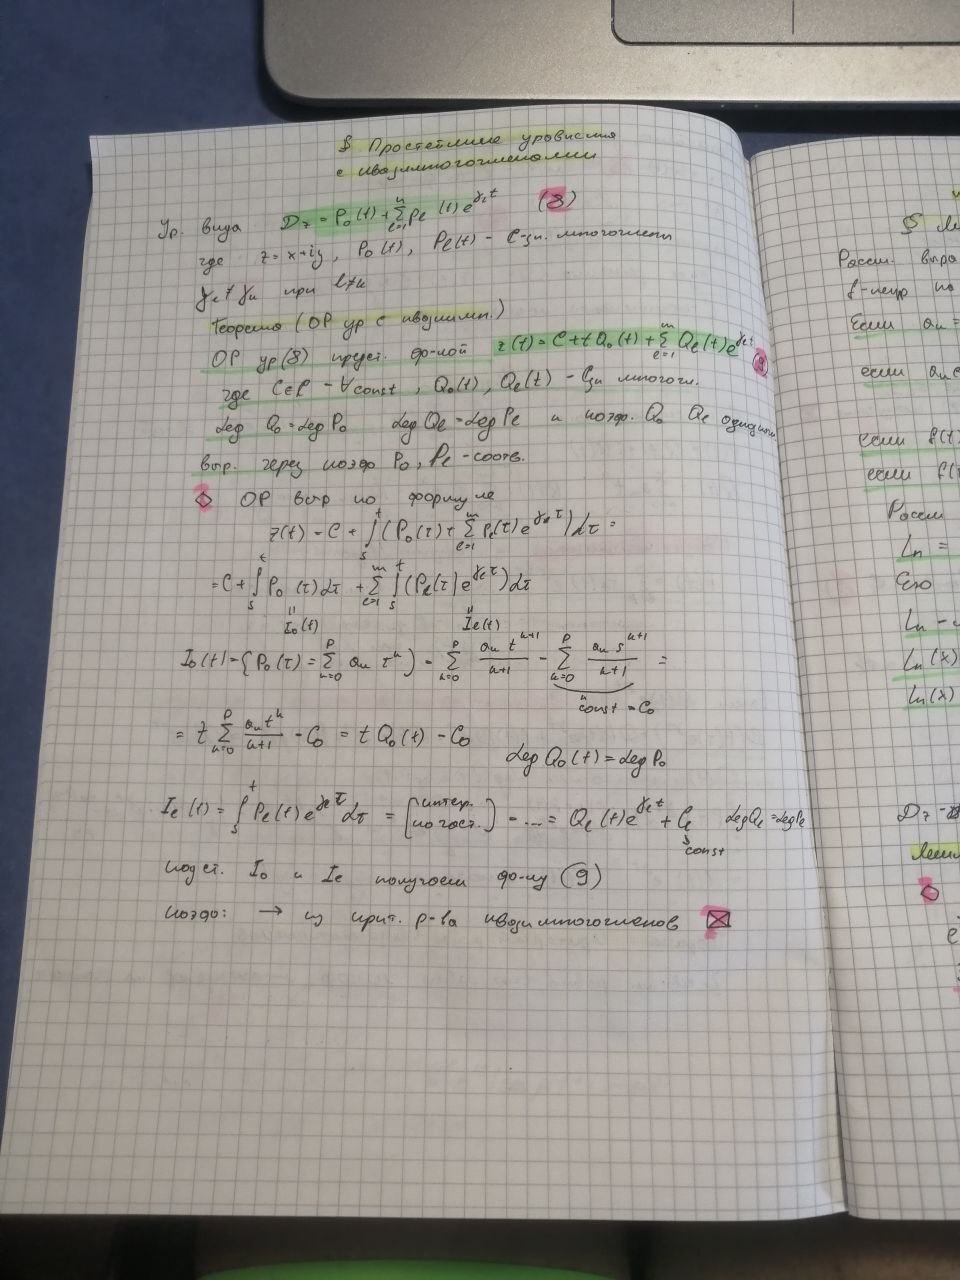 § Простейшие уравнения
с квазимногочленами
Ур. вида Dz = P₀(t) + Σ_{l=1}^{n} Pₗ(t) e^{γₗt} (8)
где z = x+iy, P₀(t), Pₗ(t) - C-зн. многочлены
γₗ ≠ γₖ при l≠k
Теорема (ОР ур с квазимн.)
ОР ур(8) предст. ф-лой z(t) = C + tQ₀(t) + Σ_{l=1}^{m} Qₗ(t) e^{γₗt} (9)
где C∈ℂ - ∀const, Q₀(t), Qₗ(t) - ℂзн многочл.
deg Q₀ = deg P₀ deg Qₗ = deg Pₗ и коэф. Q₀ Qₗ однозначн
выр. через коэф P₀, Pₗ - соотв.
◇ ОР выр по формуле
z(t) = C + ∫_s^t (P₀(τ) + Σ_{l=1}^{m} Pₗ(τ) e^{γₖτ}) dτ =
= C + ∫_s^t P₀(τ) dτ + Σ_{l=1}^{m} ∫_s^t (Pₗ(τ) e^{γₗτ}) dτ
" I₀(t) " Iₗ(t)
I₀(t) = {P₀(τ) = Σ_{k=0}^{p} aₖ τ^k} = Σ_{k=0}^{p} aₖ t^{k+1}/(k+1) - Σ_{k=0}^{p} aₖ s^{k+1}/(k+1) =
" const = C₀
= t Σ_{k=0}^{p} aₖt^k/(k+1) - C₀ = t Q₀(t) - C₀
deg Q₀(t) = deg P₀
Iₗ(t) = ∫_s^t Pₗ(t) e^{γₗτ} dτ = [интегр. по част.] = ... = Qₗ(t) e^{γₗt} + Cₗ deg Qₗ = deg Pₗ
const
подст. I₀ и Iₗ получаем ф-лу (9)
коэф: → из крит. р-ва квазимногочленов ⊠
§
Рассм. выра
f-непр по
Если aₙ =
если
если f(t)
если f(
Рассм
Lₙ =
Его
Lₙ -
Lₙ(x)
Lₙ(x)
Dz -
Лемм
◇
e